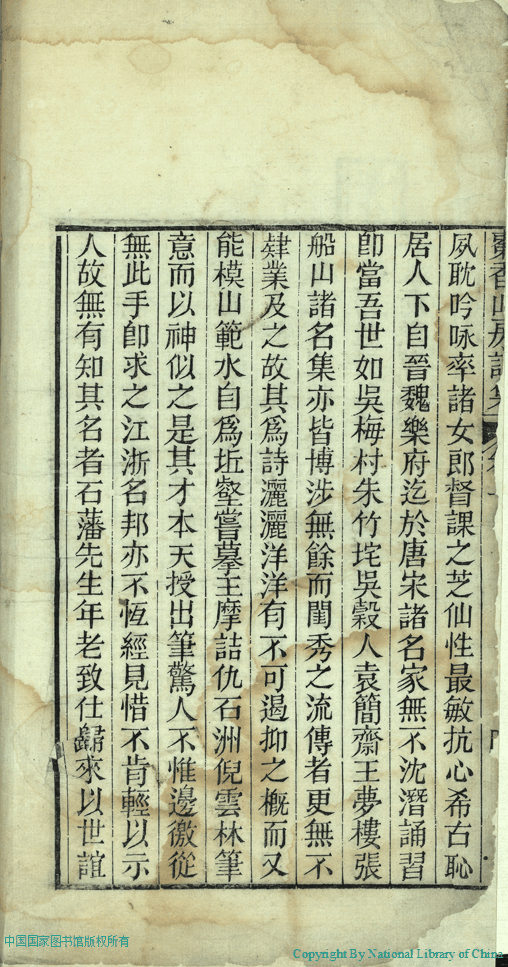 棗香山房詩集
夙耽吟咏率諸女郎督課之芝仙性最敏抗心希右恥
居人下自晉魏樂府迄於唐宋諸名家無不沈潛誦習
卽當吾世如吳梅村朱竹垞吳糓人袁簡齋王夢樓張
船山諸名集亦皆博涉無餘而閨秀之流傳者更無不
肄業及之故其爲詩灑灑洋洋有不可遏抑之概而又
能模山範水自爲坵壑嘗摹王摩詰仇石洲倪雲林筆
意而以神似之是其才本天授出筆驚人不惟邊徼從
無此手卽求之江浙名邦亦不恆經見惜不肯輕以示
人故無有知其名者石藩先生年老致仕歸來以世誼
中国国家图书馆版权所有
Copyright By National Library of China